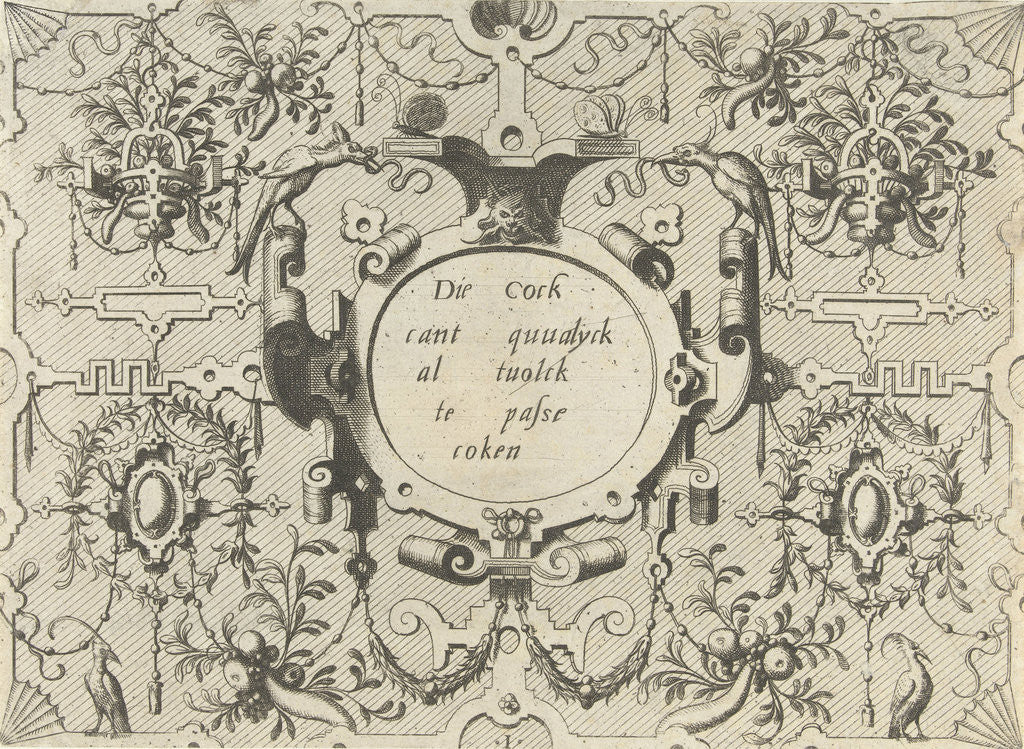 Die Cock
cant quualyck
al tuolck
te paſse
coken
·I·